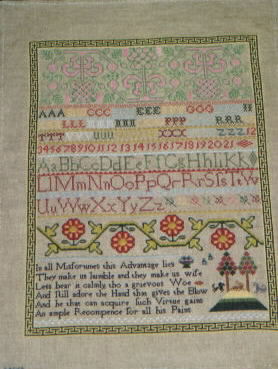 AAA CCC EEE GGG II
LLL NNN PPP RRR
TTT UUU XXX ZZZ 12
3 4 5 6 7 8 9 10 11 12 13 14 15 16 17 18 19 20 21
AaBbCcDdEeFfGgHhIiKk
LlMmNnOoPpQqRrSsTtVv
UuWwXxYyZz
In all Misfortunes this Advantage lies
They make us humble and they make us wife
Lets bear it calmly tho a grievous Woe
And still adore the Hand that gives the Blow
And he that can acquire such Virtue gains
An ample Recompence for all his Pains